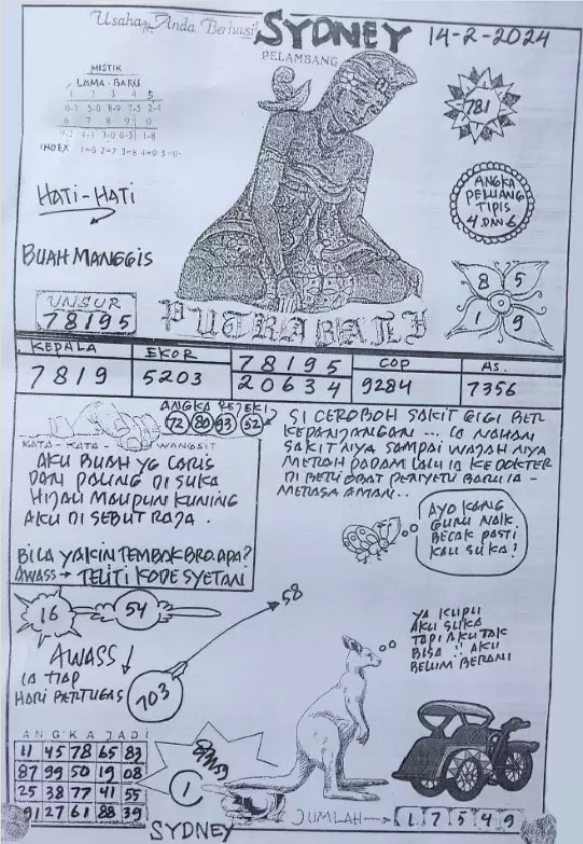 Usaha Anda Berhasil
SYDNEY
14-2-2024
PELAMBANG
MISTIK
LAMA-BARU
1 2 3 4 5
6 7 8 9 0
INDEX
781
HATI-HATI
ANGKA
PELUANG
TIPIS
4 DAN 6
BUAH MANGGIS
8 5
1 9
UNSUR
78195
KEPALA
7819
EKOR
5203
78195
20634
COP
9284
AS.
7356
ANGKA REJEKI
72 80 93 52
KATA-KATA WANGSIT
AKU BUAH YG LARIS
DAN PALING DI SUKA
HIJAU MAUPUN KUNING
AKU DI SEBUT RAJA.
BILA YAKIN TEMBAK BRO. APA?
AWASS → TELITI KODE SYETAN
SI CEROBOH SAKIT GIGI BER
KEPANJANGAN... IA NAHAN
SAKITNIYA SAMPAI WAJAH NIYA
MERAH PADAM LALU IA KE DOKTER
DI BERI OBAT PENIYETU BARU IA -
MERASA AMAN..
AYO KANG
GURU NAIK
BECAK PASTI
KAU SUKA!
16
54
58
AWASS
IA TIAP
HARI BERTUGAS
703
YA KUPU
AKU SUKA
TAPI AKU TAK
BISA !! AKU
BELUM BERANI
ANGKA JADI
11 45 78 65 82
87 99 50 19 08
25 38 77 41 55
91 27 61 88 39
1
SYDNEY
JUMLAH → 1 7 5 4 9